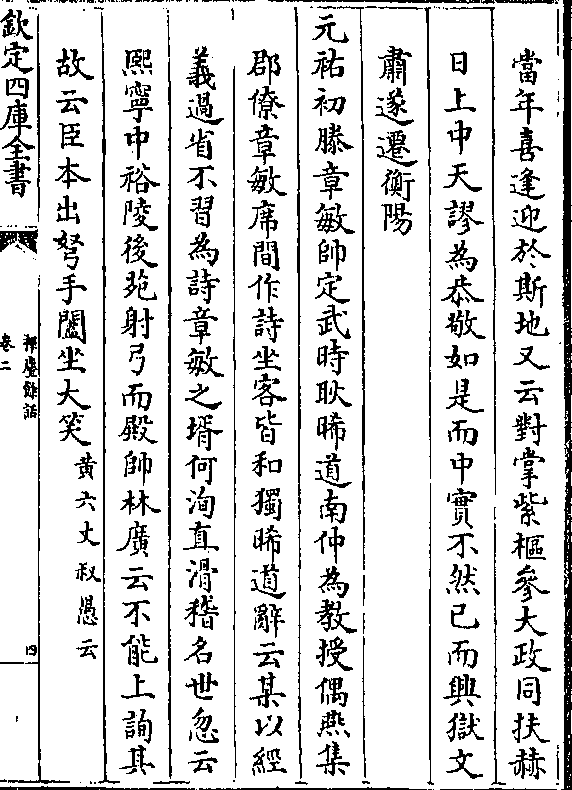 當年喜逢迎於斯地又云對掌紫樞參大政同扶赫
日上中天謬為恭敬如是而中實不然已而興獄文
肅遂遷衡陽
元祐初滕章敏帥定武時耿晞道南仲為教授偶燕集
郡僚章敏席間作詩坐客皆和獨晞道辭云某以經
義過省不習為詩章敏之壻何洵直滑稽名世忽云
熙寧中裕陵後苑射弓而殿帥林廣云不能上詢其
故云臣本出弩手闔坐大笑黄六丈叔愚云
欽定四庫全書
揮麈餘話
卷二
四